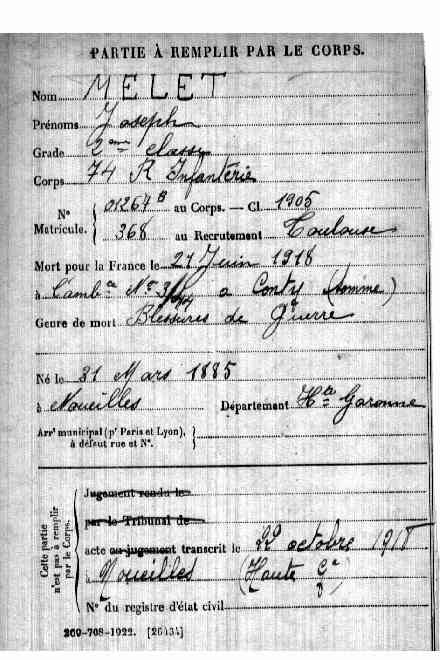 PARTIE À REMPLIR PAR LE CORPS.
Nom MELET
Prénoms Joseph
Grade 2ème classe
Corps 74 R Infanterie
N° Matricule. 01264 B au Corps. — Cl. 1905
368 au Recrutement Toulouse
Mort pour la France le 21 Juin 1918
à l'ambce N° a Conty (Somme)
Genre de mort Blessures de Guerre
Né le 31 Mars 1885
à Noueilles Département Hte Garonne
Arrt municipal (pr Paris et Lyon),
à défaut rue et N°.
Cette partie n'est pas à remplir par le Corps.
Jugement rendu le
par le Tribunal de
acte ou jugement transcrit le octobre 1918
à Noueilles (Haute
N° du registre d'état civil
269-708-1922. [26434]